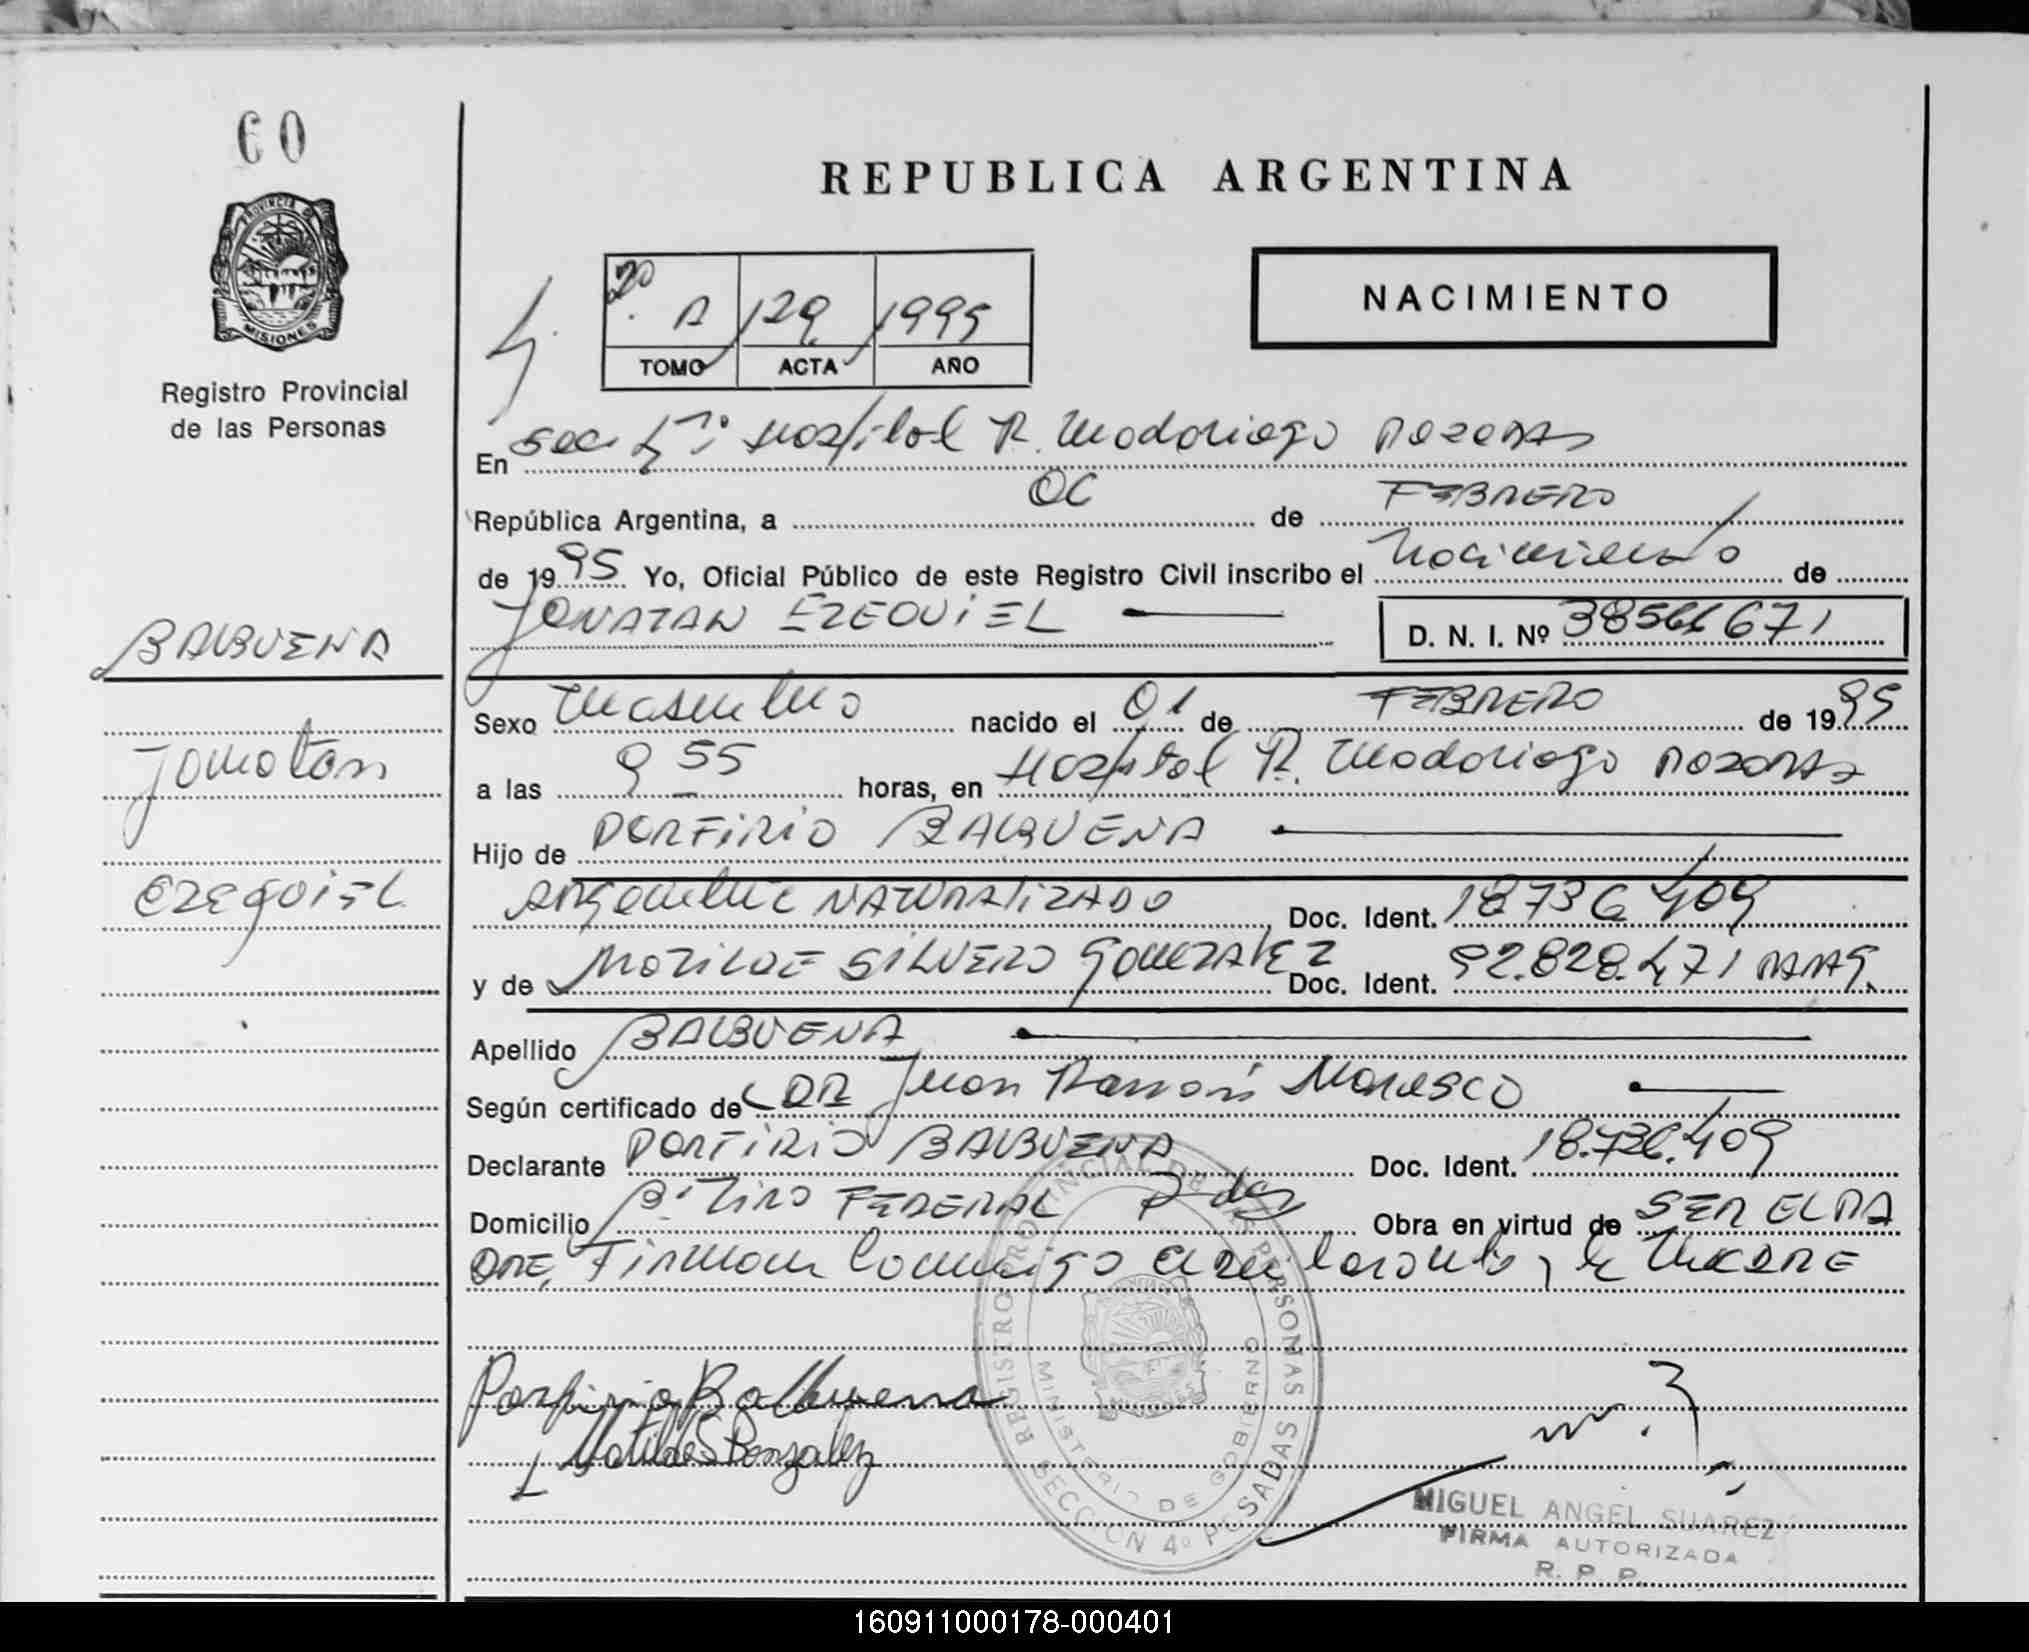 60
PROVINCIA DE
MISIONES
Registro Provincial
de las Personas
REPUBLICA ARGENTINA
NACIMIENTO
20
A 129 1995
TOMO ACTA AÑO
En Sec 4ª Hospital R. Madariaga Posadas
República Argentina, a 06 de FEBRERO
de 1995 Yo, Oficial Público de este Registro Civil inscribo el Nacimiento de
JONATAN EZEQUIEL
D. N. I. Nº 38566671
BALBUENA
Jonatan
EZEQUIEL
Sexo Masculino nacido el 01 de FEBRERO de 1995
a las 9 55 horas, en Hospital R. Madariaga Posadas
Hijo de PORFIRIO BALBUENA
Argentino NATURALIZADO Doc. Ident. 18736409
y de MATILDE SILVERO GONZALEZ Doc. Ident. 92.828.471 PARAG.
Apellido BALBUENA
Según certificado de DR Juan Ramón
Declarante PORFIRIO BALBUENA Doc. Ident. 18.736.409
Domicilio Bº TIRO FEDERAL Pdas Obra en virtud de SER EL PA
DRE, Firman conmigo el declarante y la MADRE
Porfirio Balbuena
Matilde S Gonzalez
REGISTRO PROVINCIAL DE LAS PERSONAS
MINISTERIO DE GOBIERNO
SECCION 4º POSADAS
MIGUEL ANGEL SUAREZ
FIRMA AUTORIZADA
R. P. P.
160911000178-000401